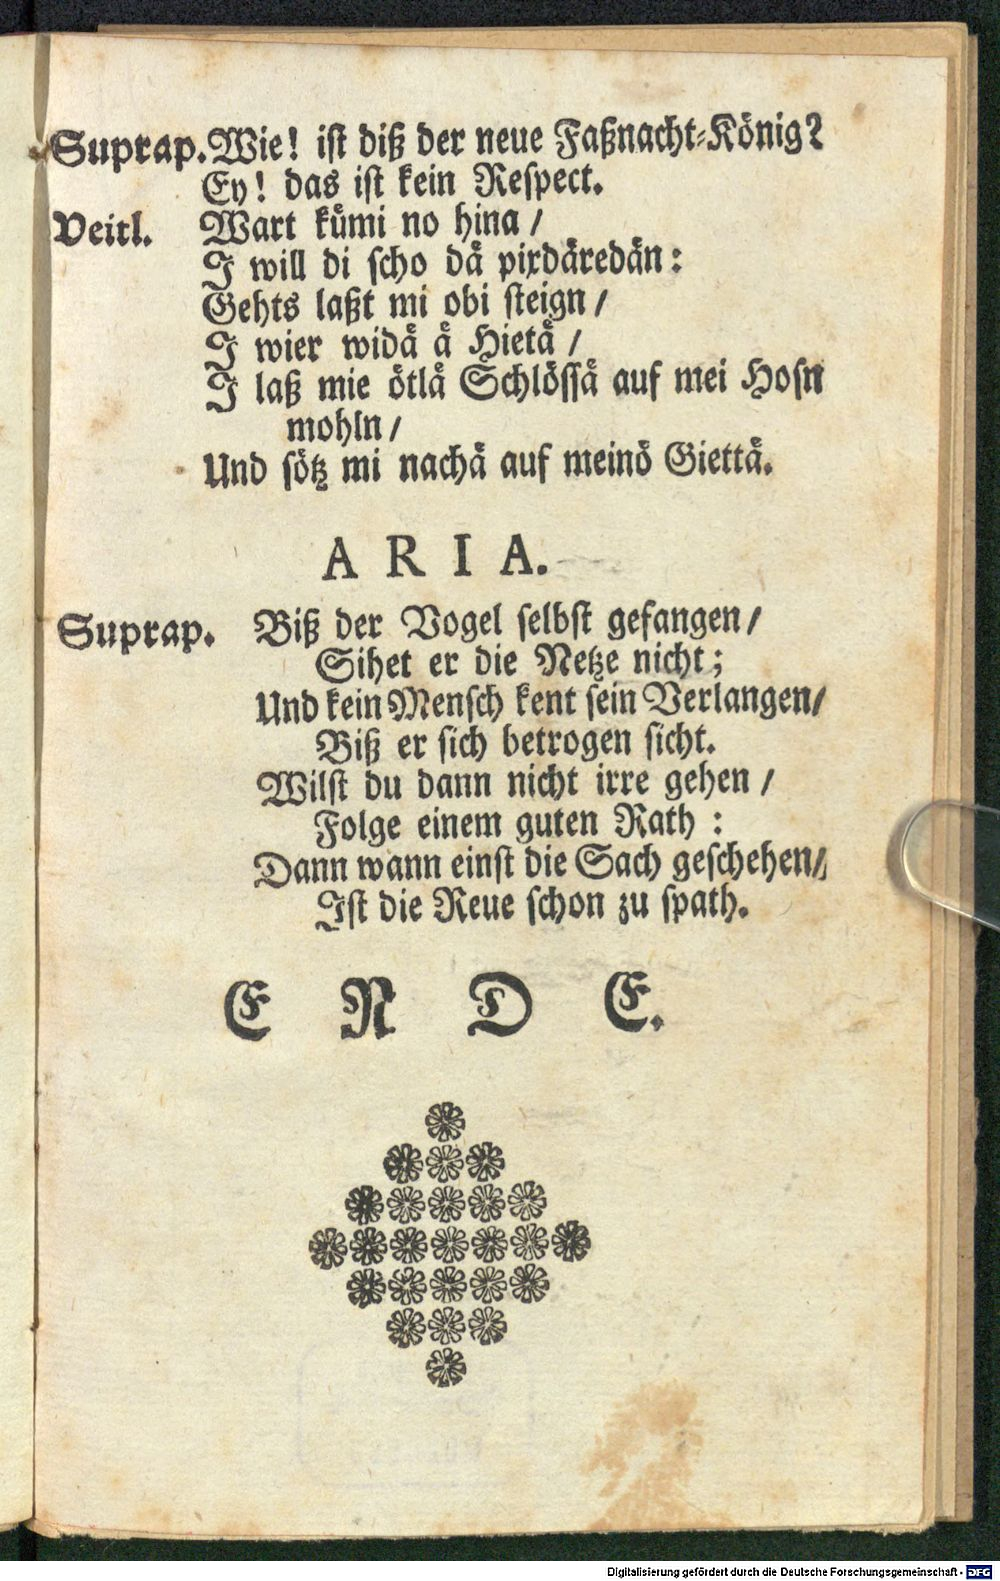 Suprap. Wie! ist diß der neue Faßnacht-König?
Ey! das ist kein Respect.
Veitl. Wart kümi no hina /
I will di scho dä pixdäredän:
Gehts laßt mi obi steign /
I wier widä ä Hietä /
I laß mie ötlä Schlössä auf mei Hosn
mohln /
Und sötz mi nachä auf meinö Giettä.
ARIA.
Suprap. Biß der Vogel selbst gefangen /
Sihet er die Netze nicht;
Und kein Mensch kent sein Verlangen /
Biß er sich betrogen sicht.
Wilst du dann nicht irre gehen /
Folge einem guten Rath :
Dann wann einst die Sach geschehen /
Ist die Reue schon zu spath.
ENDE.
Digitalisierung gefördert durch die Deutsche Forschungsgemeinschaft - DFG